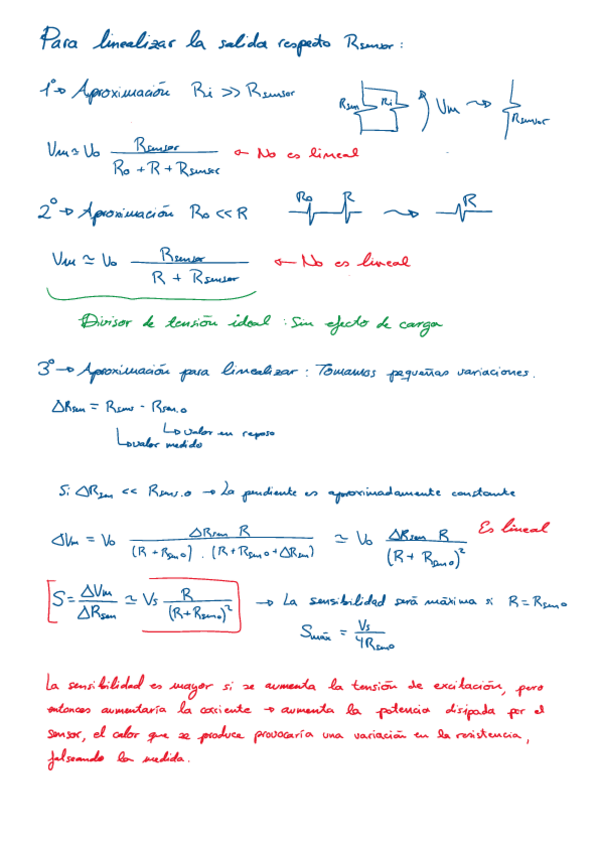 Para linealizar la salida respecto Rsensor:
1º → Aproximación Ri >> Rsensor
Rsen Ri Vm Rsensor
Vm ≃ Vo Rsensor / (Ro + R + Rsensor) ← No es lineal
2º → Aproximación Ro << R Ro R R
Vm ≃ Vo Rsensor / (R + Rsensor) ← No es lineal
Divisor de tensión ideal: Sin efecto de carga
3º → Aproximación para linealizar: Tomamos pequeñas variaciones.
ΔRsen = Rsens - Rsen.o
↳ valor en reposo
↳ valor medido
Si ΔRsen << Rsens.o → La pendiente es aproximadamente constante
Es lineal
ΔVm = Vo ΔRsen R / ((R + Rseno) . (R + Rseno + ΔRsen)) ≃ Vo ΔRsen R / (R + Rseno)²
S = ΔVm / ΔRsen ≃ Vs R / (R + Rseno)² → La sensibilidad será máxima si R = Rseno
Smáx = Vs / 4Rseno
La sensibilidad es mayor si se aumenta la tensión de excitación, pero
entonces aumentaría la corriente → aumenta la potencia disipada por el
sensor, el calor que se produce provocaría una variación en la resistencia,
falseando la medida.